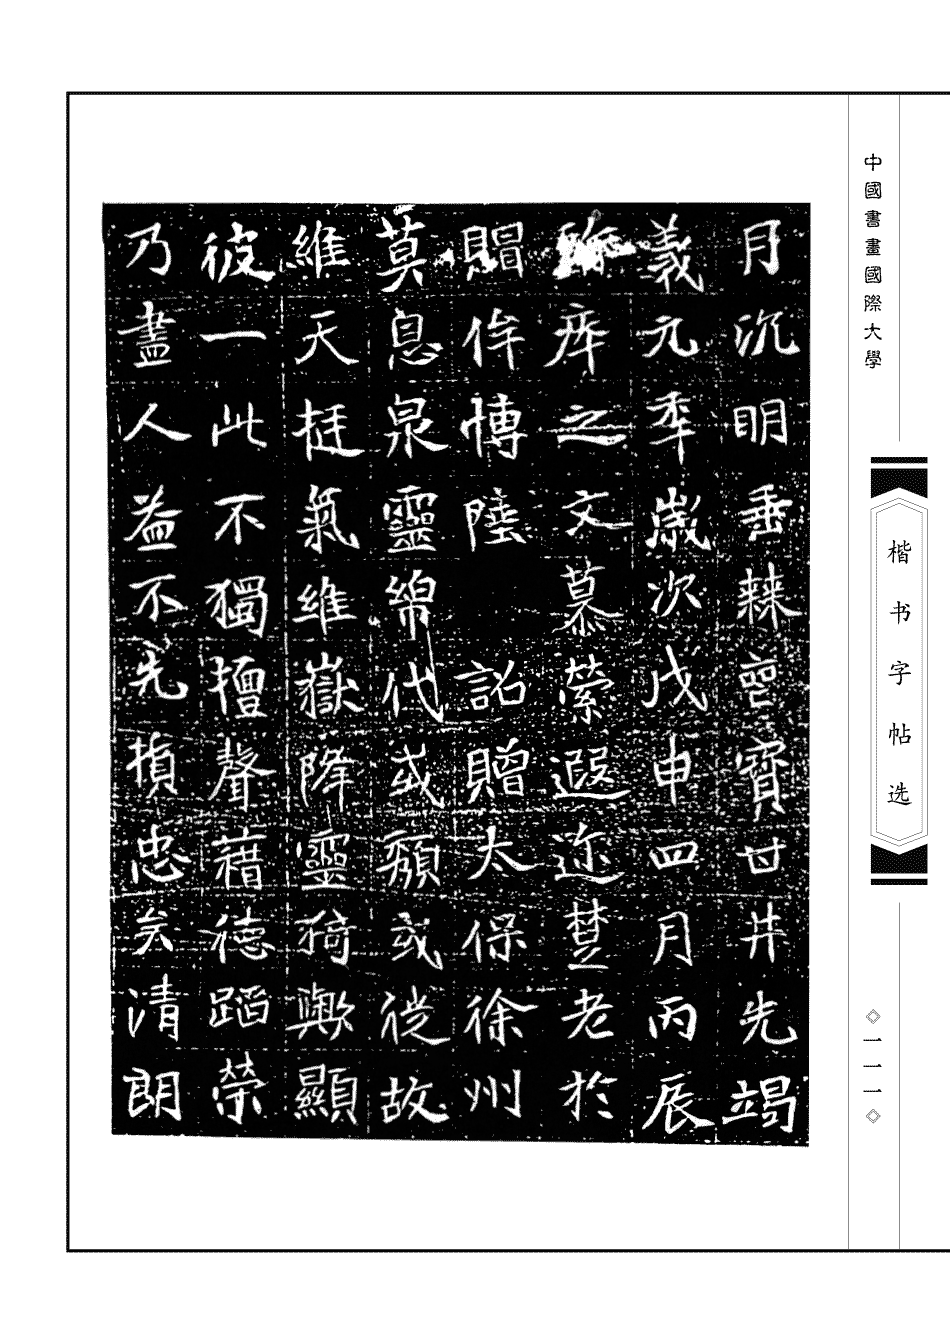 中國書畫國際大學
楷书字帖选
一一一
月沉明垂棘喪寶甘井先竭
義元年歲次戊申四月丙辰
瘁之文慕縈遐迩楚老於
賵侔博陸 詔贈太保徐州
莫息泉靈綿代或頹或從故
維天挺氣維嶽降靈猗歟顯
彼一此不獨擅聲藉德蹈榮
乃盡人益不先損忠矣清朗